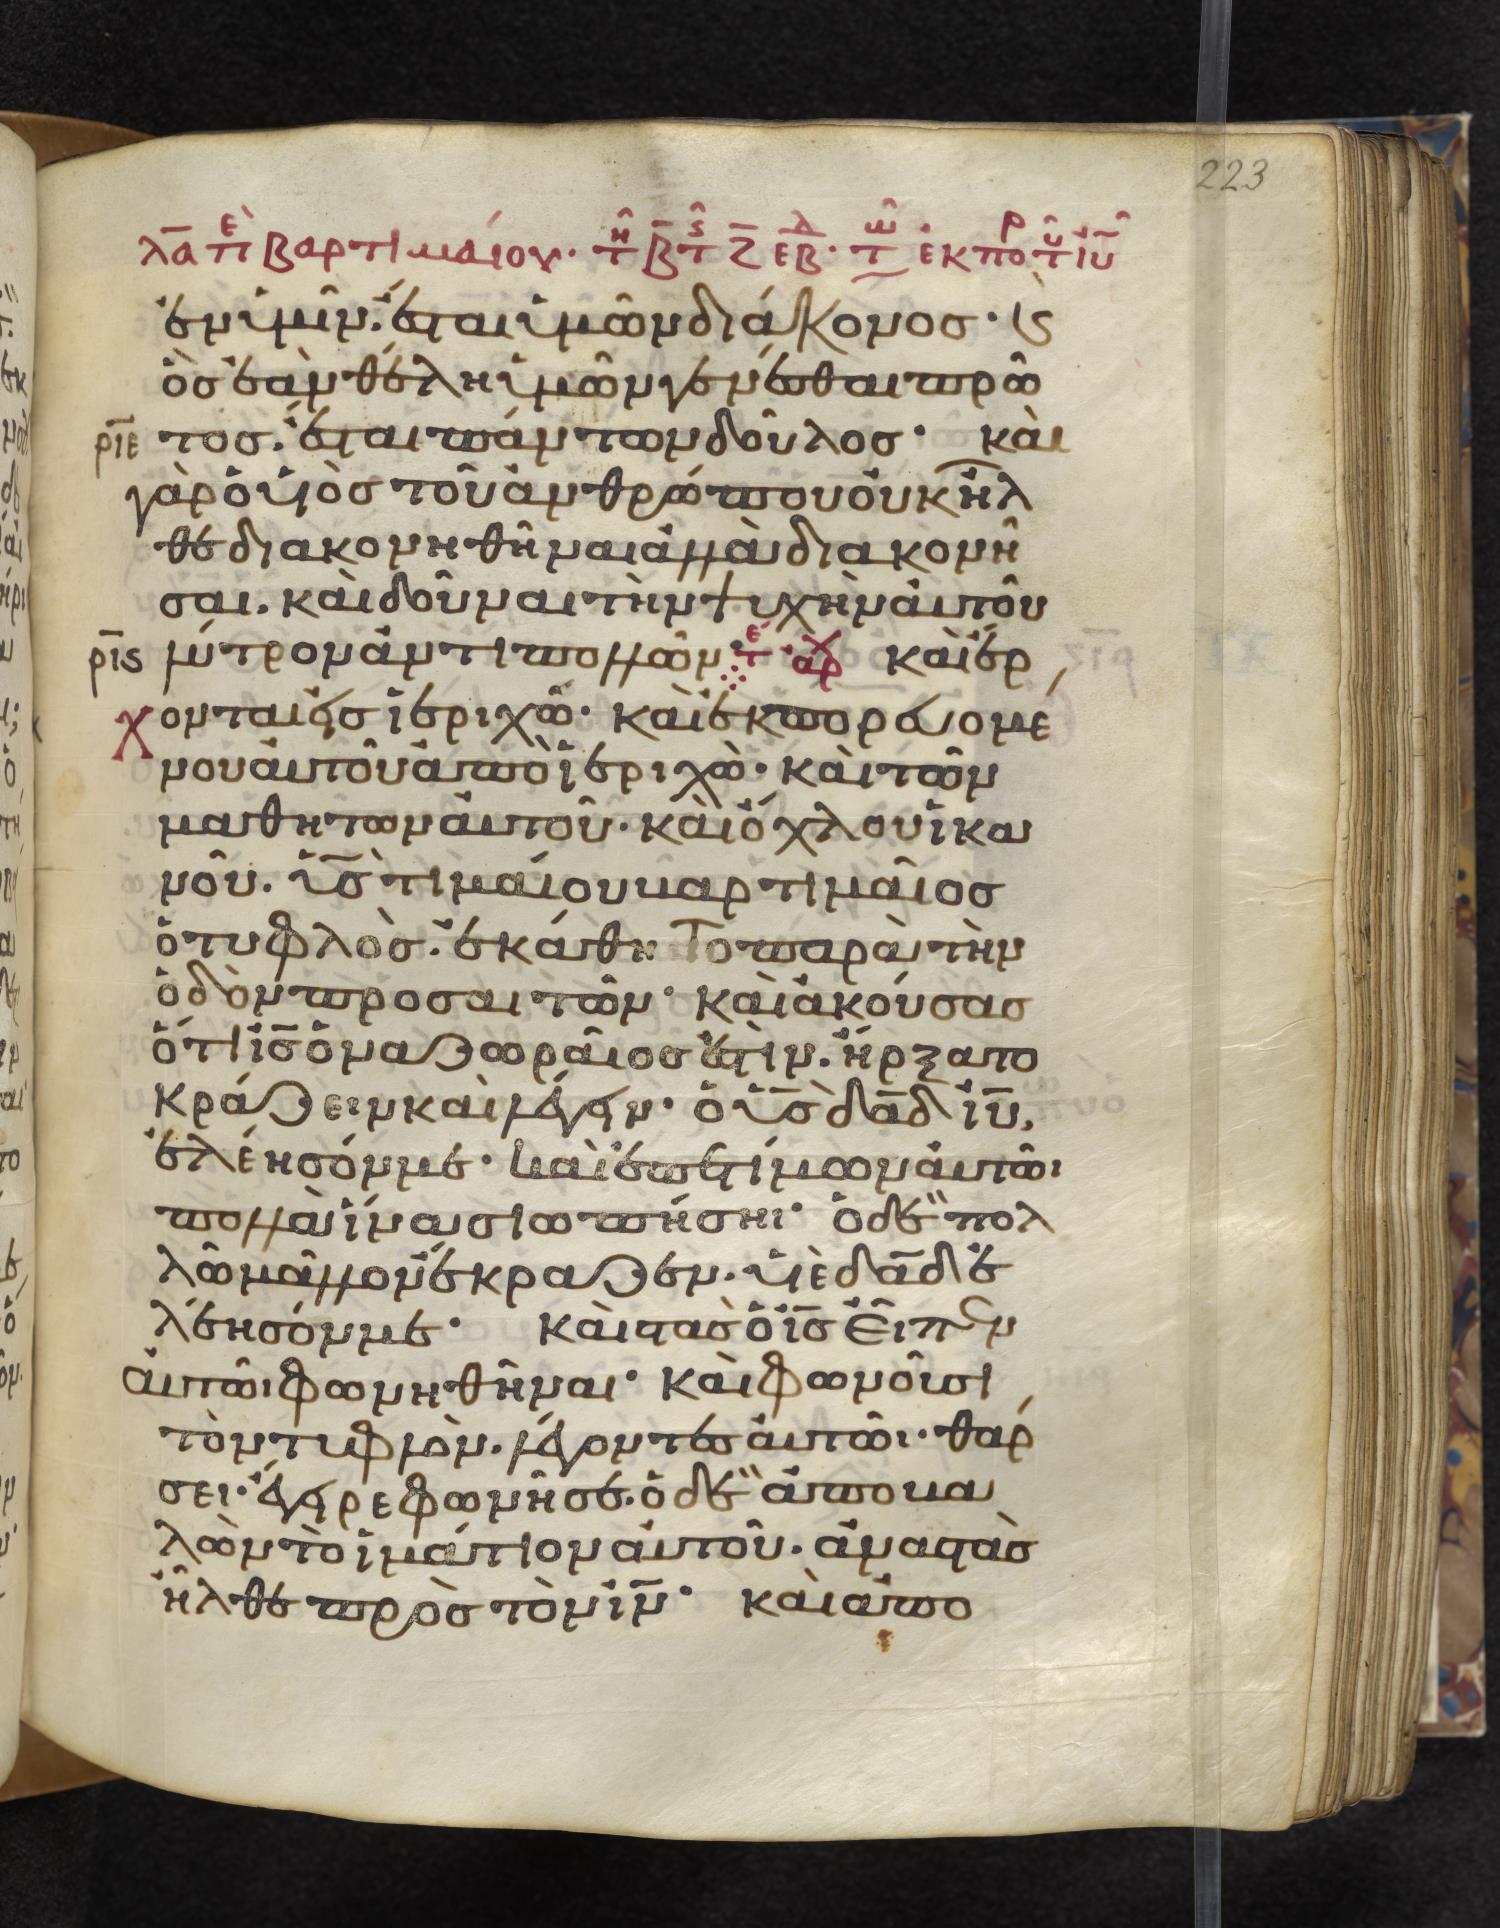 223
λ̅α̅ πε βαρτιμαίου· τη β̅ τς ζ̅ εβδ· τω ἐκπορ τυ ι̅υ̅
ἐν ὑμῖν. ἔσται ὑμῶν διάκονος· κ(αὶ)
ὃς ἐὰν θέλη ὑμῶν γενέσθαι πρῶ
ρ̅ι̅ε̅ τος. ἔσται πάντων δοῦλος· καὶ
γὰρ ὁ υἱὸς τοῦ ἀνθρώπου οὐκ ἦλ
θε διακονηθῆναι ἀλλὰ διακονῆ
σαι. καὶ δοῦναι τὴν ψυχὴν αὐτοῦ
ρ̅ι̅ς̅ λύτρον ἀντὶ πολλῶν τε αρχ καὶ ἔρ
χονται εἰς ἱεριχῶ· καὶ ἐκπορευομέ
νου αὐτοῦ ἀπὸ ἱεριχὼ· καὶ τῶν
μαθητων αὐτοῦ· καὶ ὄχλου ἱκα
νοῦ. υ̅ς̅ τιμαίου βαρτιμαῖος
ὁ τυφλὸς. ἐκάθητο παρὰ τὴν
ὁδὸν προσαιτῶν· καὶ ἀκούσας
ὅτι ι̅ς̅ ὁ ναζωραῖος ἐστὶν. ἤρξατο
κράζειν καὶ λέγειν· ὁ υ̅ς̅ δ̅α̅δ̅ ι̅υ̅,
ἐλέησόν με· καὶ ἐπετίμων αὐτῶι
πολλὰ ἵνα σιωπήσηι· ὁ δὲ πολ
λῶ μᾶλλον ἔκραζεν. υἱὲ δ̅α̅δ̅ ἐ
λέησόν με· καὶ στὰς ὁ ι̅ς̅ εἶπεν
αὐτῶι φωνηθῆναι· καὶ φωνοῦσι
τὸν τυφλὸν. λέγοντες αὐτῶι· θάρ
σει· ἔγειρε φωνῆ σε. ὁ δὲ ἀποβα
λὼν τὸ ἱμάτιον αὐτοῦ. ἀναστὰς
ἦλθε πρὸς τὸν ι̅ν̅· καὶ ἀπο